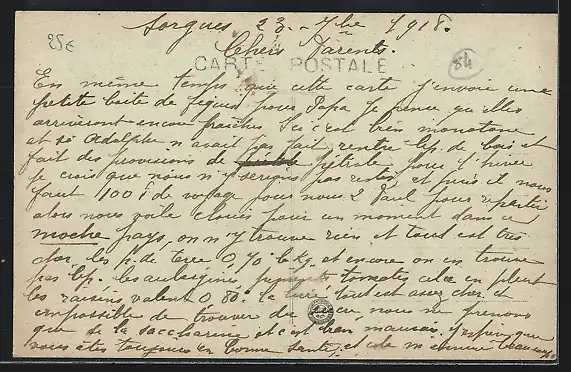 Sorgues 23 - 7bre 1918.
25€
Chers Parents.
84
CARTE POSTALE
En même temps que cette carte j'envoie une
petite boite de figues pour Papa je pense qu'elles
arriveront encore fraîches. Ici c'est bien monotone
et si Adolphe n'avait pas fait rentrer bp. de bois et
fait des provisions de pétrole pour l'hiver
je crois que nous n'y serions pas restés, et puis il nous
faut 100 f de voyage pour nous 2 Paul pour repartir
alors nous voila cloués pour un moment dans ce
moche pays, on n'y trouve rien et tout est très
cher, les p. de terre 0,70 le kg, et encore on en trouve
pas bp. les aubergines, tomates, cela en pleut
les raisins valent 0,80 le kilo, tout est assez cher, et
impossible de trouver de nous ne prenons
que de la saccharine et c'est bien mauvais. J'espère que
vous êtes toujours en bonne santé, et